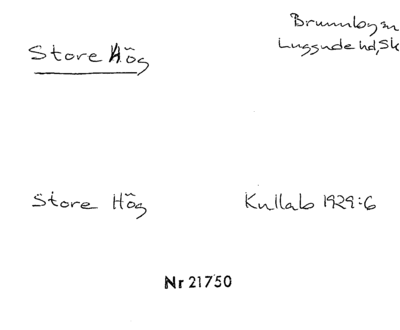 Store Hög
Brunnby sn
Luggude hd, Sk
Store Hög
Kullab 1929:6
Nr 21750